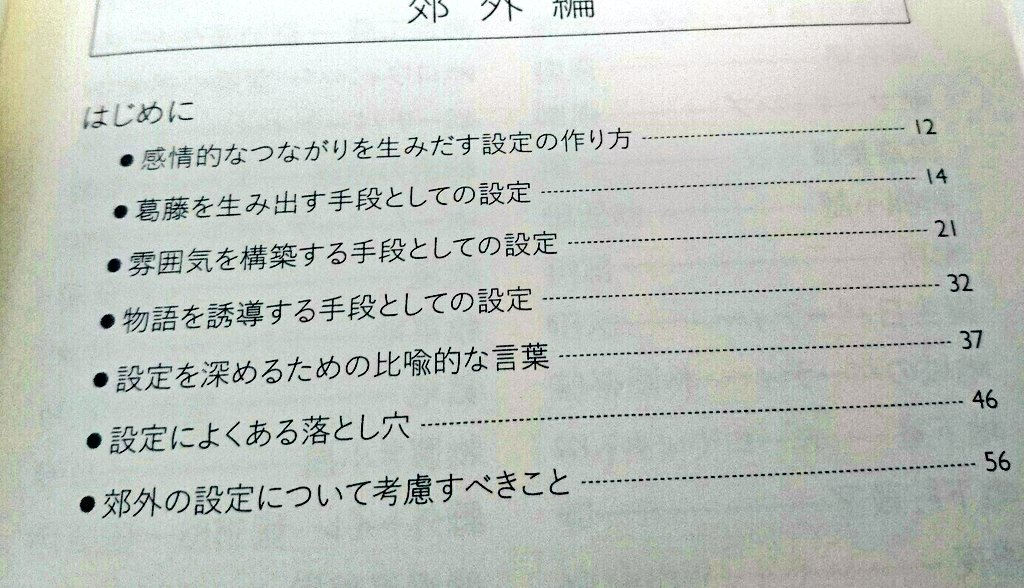 郊外編
はじめに
●感情的なつながりを生みだす設定の作り方 12
●葛藤を生み出す手段としての設定 14
●雰囲気を構築する手段としての設定 21
●物語を誘導する手段としての設定 32
●設定を深めるための比喩的な言葉 37
●設定によくある落とし穴 46
●郊外の設定について考慮すべきこと 56